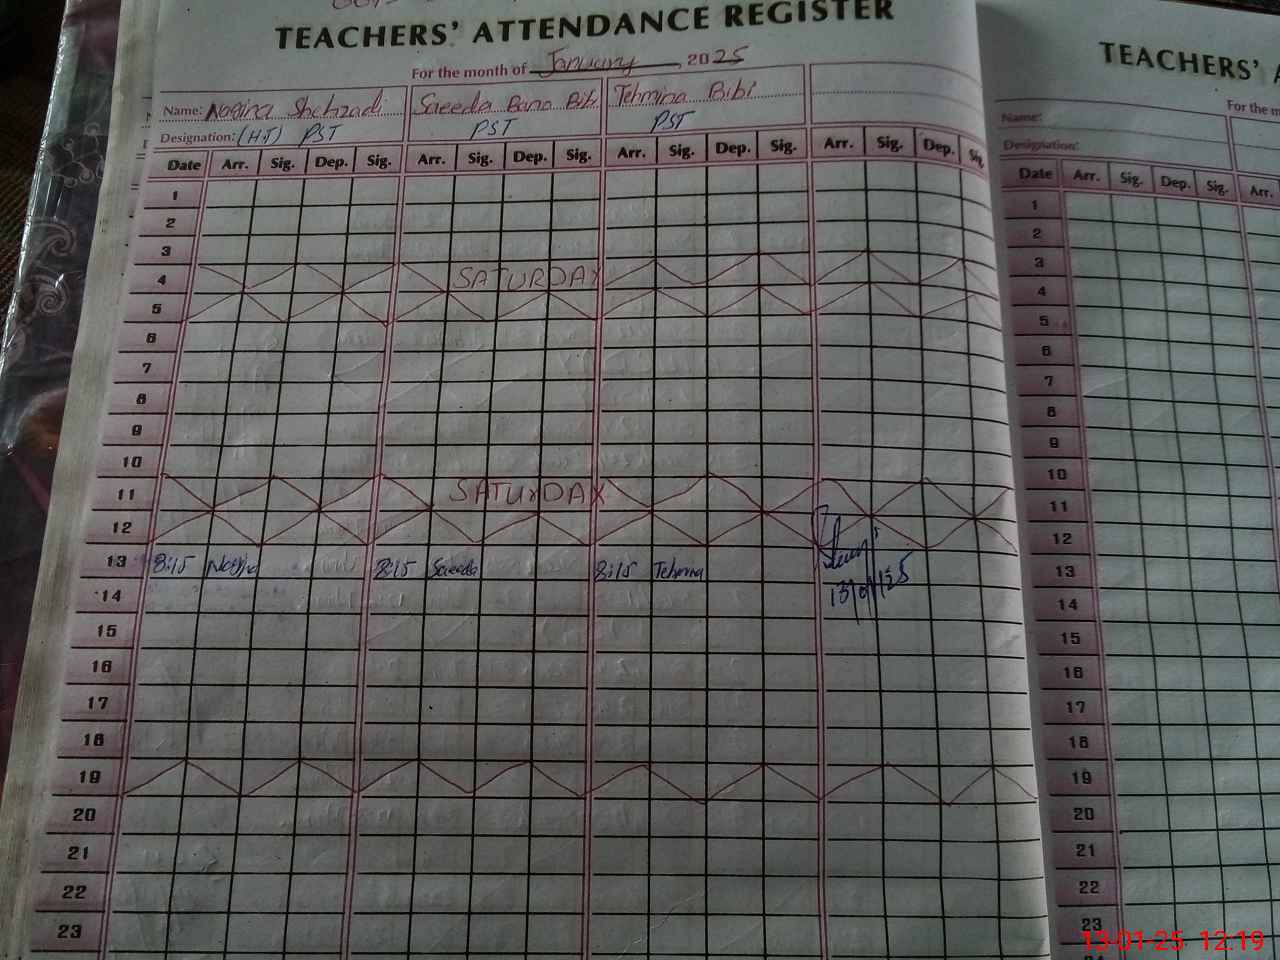 TEACHERS' ATTENDANCE REGISTER
For the month of January, 2025
Name: Nagina Shehzadi Saeeda Bano Bibi Tehmina Bibi
Designation: (HT) PST PST PST
Date Arr. Sig. Dep. Sig. Arr. Sig. Dep. Sig. Arr. Sig. Dep. Sig. Arr. Sig. Dep. Sig.
1
2
3
4 SATURDAY
5
6
7
8
9
10
11 SATURDAY
12
13 8:15 Nagina 8:15 Saeeda 8:15 Tehmina
13/01/25
14
15
16
17
18
19
20
21
22
23
TEACHERS'
For the
Name:
Designation:
Date Arr. Sig. Dep. Sig. Arr.
1
2
3
4
5
6
7
8
9
10
11
12
13
14
15
16
17
18
19
20
21
22
23
13-01-25 12:19